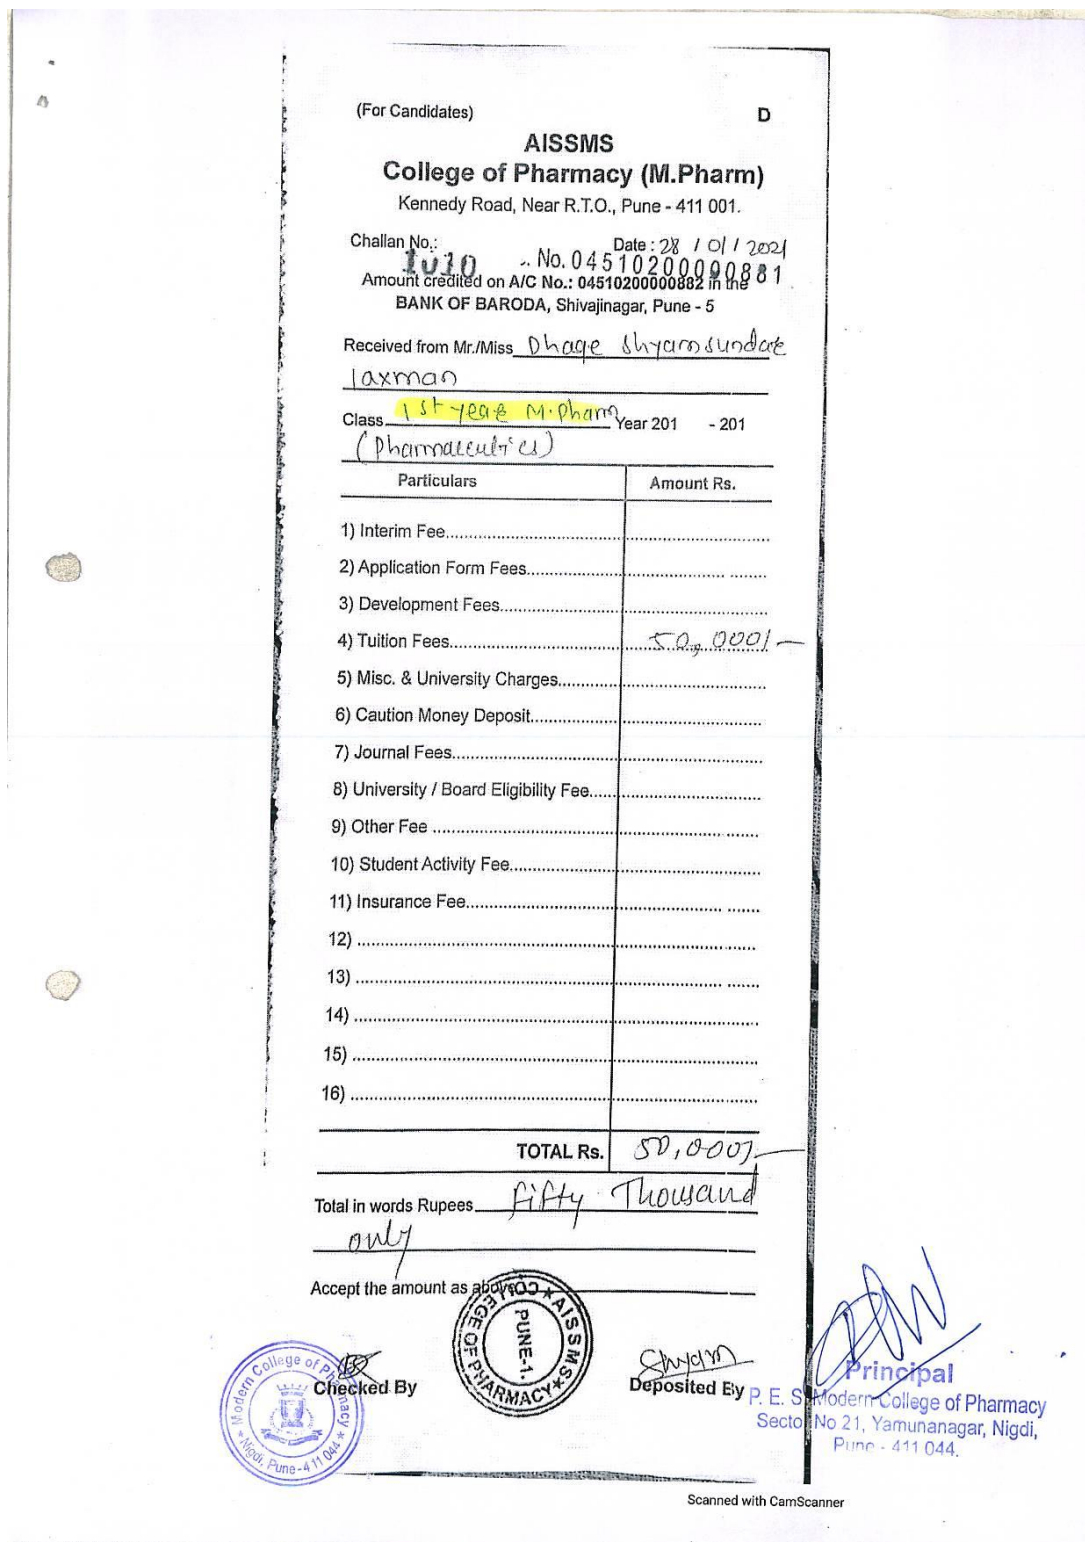 (For Candidates) D
AISSMS
College of Pharmacy (M.Pharm)
Kennedy Road, Near R.T.O., Pune - 411 001.
Challan No.: 1010 Date : 28 / 01 / 2021
No. 04510200000881
Amount credited on A/C No.: 04510200000882 in the
BANK OF BARODA, Shivajinagar, Pune - 5
Received from Mr./Miss Dhage Shyamsundar
laxman
Class 1st year M.Pharm Year 201 - 201
(Pharmaceutics)
Particulars Amount Rs.
1) Interim Fee
2) Application Form Fees
3) Development Fees
4) Tuition Fees 50,000/-
5) Misc. & University Charges
6) Caution Money Deposit
7) Journal Fees
8) University / Board Eligibility Fee
9) Other Fee
10) Student Activity Fee
11) Insurance Fee
12)
13)
14)
15)
16)
TOTAL Rs. 50,000/-
Total in words Rupees Fifty Thousand
only
Accept the amount as above
AISSMS COLLEGE OF PHARMACY PUNE-1.
Modern College of Pharmacy Nigdi, Pune-411 044
Checked By
Shyam
Deposited By
Principal
P. E. S. Modern College of Pharmacy
Sector No 21, Yamunanagar, Nigdi,
Pune - 411 044.
Scanned with CamScanner